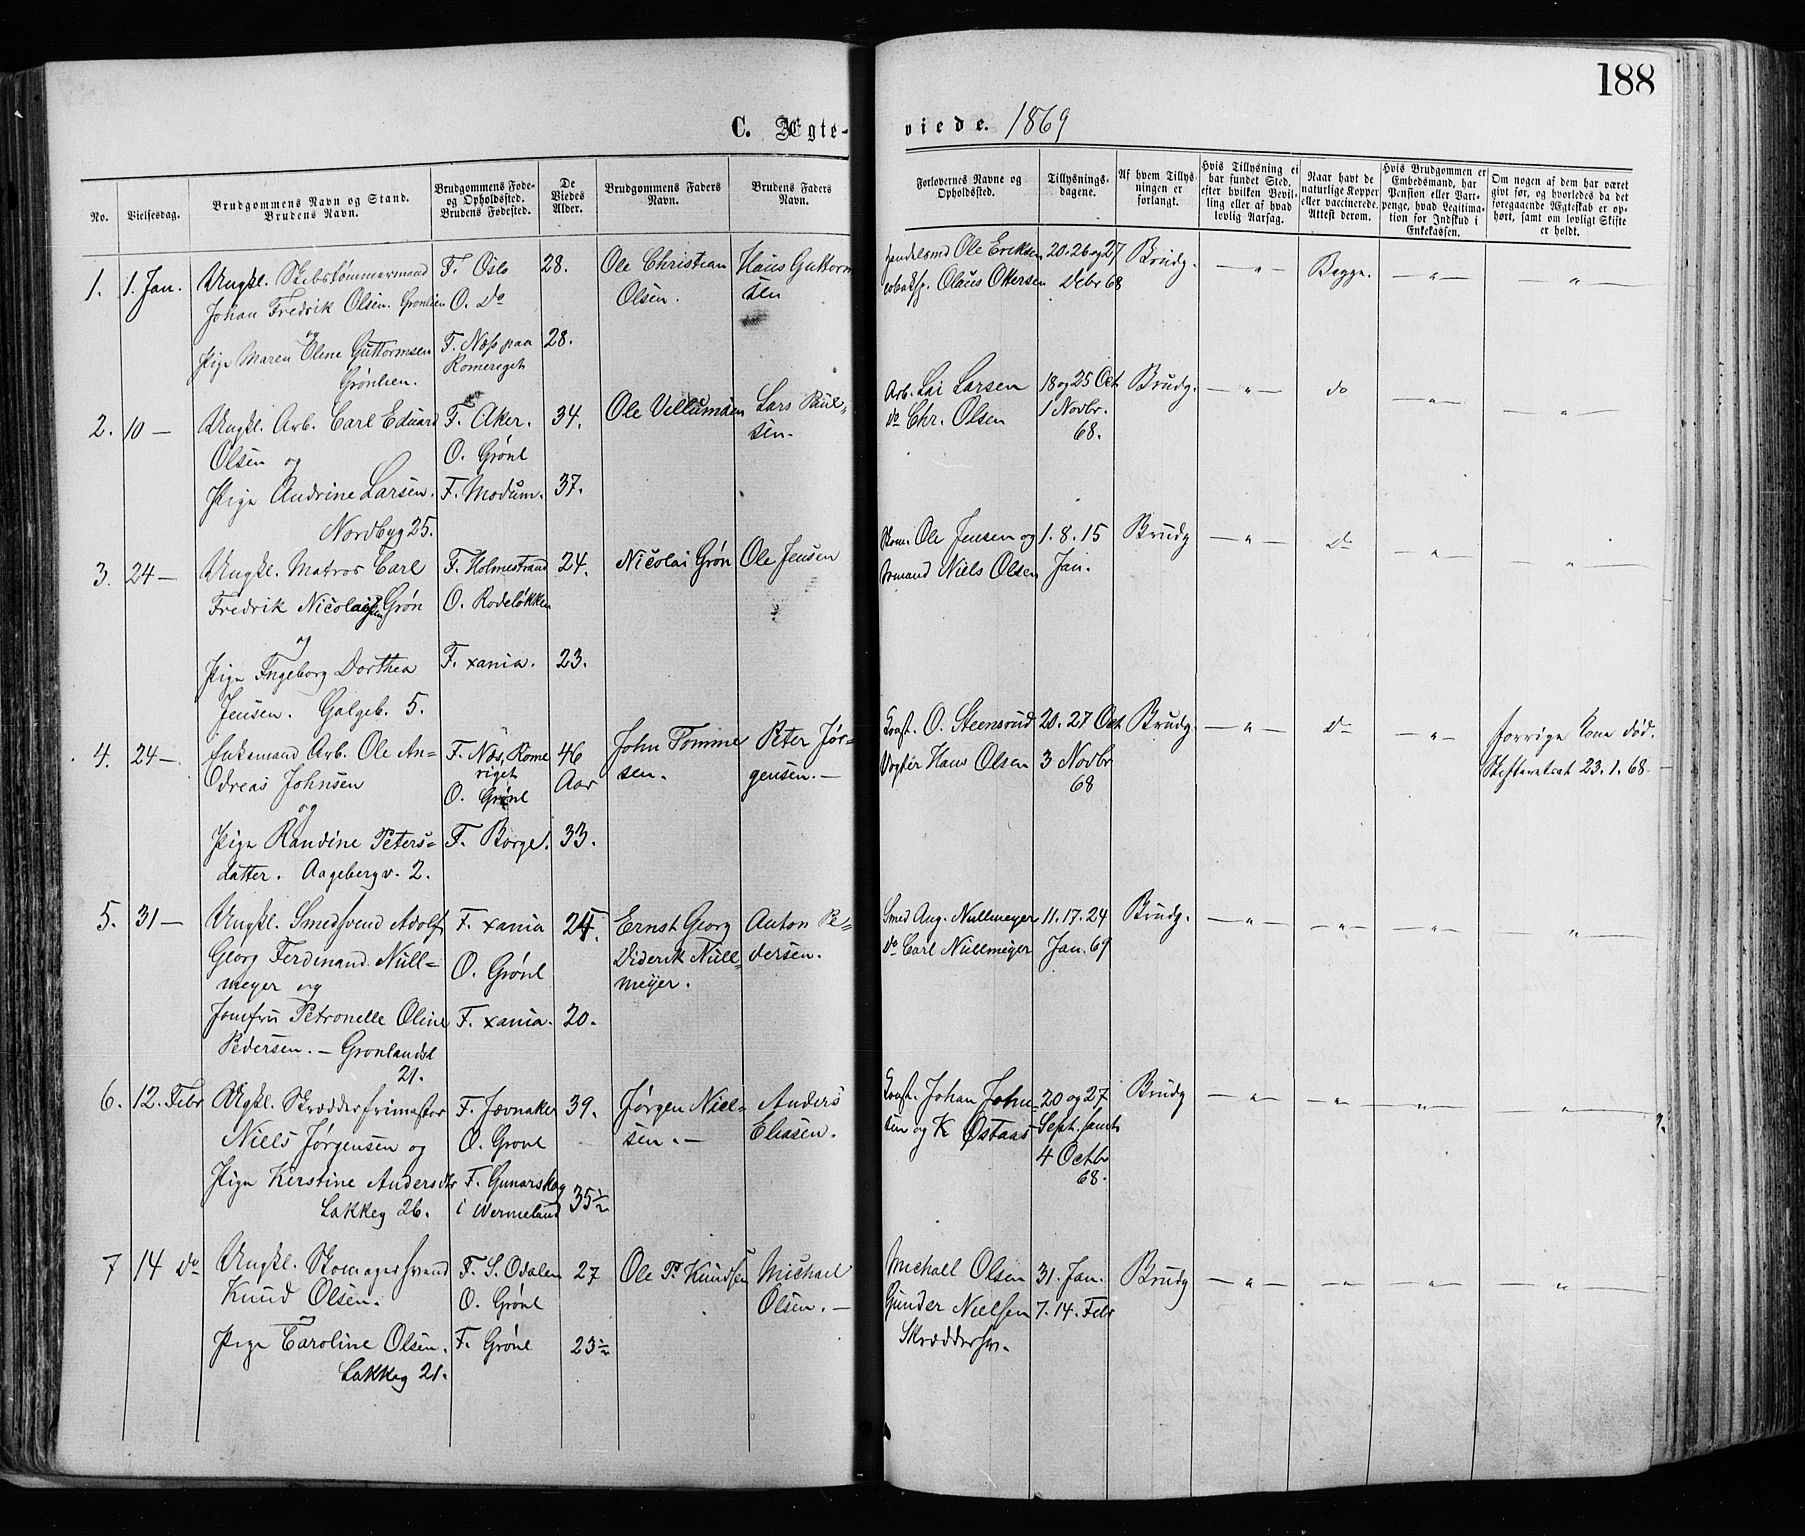 188
C. Ægte- viede. 1869
No.
Vielsesdag.
Brudgommens Navn og Stand.
Brudens Navn.
Brudgommens Føde-
og Opholdssted.
Brudens Fødested.
De
Viedes
Alder.
Brudgommens Faders
Navn.
Brudens Faders
Navn.
Forlovernes Navne og
Opholdssted.
Tillysnings-
dagene.
Af hvem Tillys-
ningen er
forlangt.
Hvis Tillysning ei
har fundet Sted,
efter hvilken Bevil-
ling eller af hvad
lovlig Aarsag.
Naar havt de
naturlige Kopper
eller vaccinerede.
Attest derom.
Hvis Brudgommen er
Embedsmand, har
Pension eller Vart-
penge, hvad Legitima-
tion for Indskud i
Enkekassen.
Om nogen af dem har været
givt før, og hvorledes da det
foregaaende Ægteskab er op-
hørt, samt om lovligt Skifte
er holdt.
1. 1. Jan.
Ungkl. Skibstømmermand
Johan Fredrik Olsen. Grønlien
og
Pige Maren Oline Guttormsen
Grønlien.
F. Oslo
O. Do
F. Næs paa
Romeriget
28.
28.
Ole Christian
Olsen.
Hans Guttorm
sen
Ole Eriksen
Olaus Ottersen
20. 26 og 27
Debr 68
Brudg.
— " —
Begge.
— " —
— " —
2. 10 —
Ungkl. Arb. Carl Eduard
Olsen og
Pige Andrine Larsen.
Nordbyg 25.
F. Aker.
O. Grønl
F. Modum.
34.
37.
Ole Villumsen
Lars Paul-
sen.
Arb. Lai Larsen
do Chr. Olsen
18 og 25 Oct
1 Novbr.
68.
Brudg.
— " —
do
— " —
— " —
3. 24 —
Ungkl. Matros Carl
Fredrik Nicolaisen Grøn
og
Pige Ingeborg Dorthea
Jensen. Galgeb. 5.
F. Holmestrand
O. Rodeløkken
F. xania.
24.
23.
Nicolai Grøn
Ole Jensen
Ole Jensen og
Niels Olsen
1. 8. 15
Jan.
Brudg
— " —
Do
— " —
— " —
4. 24 —
Enkemand Arb. Ole An-
dreas Johnsen
og
Pige Randine Peters-
datter. Aagebergv. 2.
F. Næs, Rome
riget
O. Grønl
F. Borge.
46
Aar
33.
John Tomme
sen.
Peter Jør-
gensen. —
O. Steensrud
Vogter Hans Olsen
20. 27 Oct
3 Novbr
68
Brudg.
— " —
Do
— " —
forrige Kone død.
Skifteattest 23.1.68.
5. 31 —
Ungkl. Smedsvend Adolf
Georg Ferdinand Null-
meyer og
Jomfru Petronelle Oline
Pedersen. — Grønlandsl
21.
F. xania
O. Grønl
F. xania.
25.
20.
Ernst Georg
Diderik Null-
meijer.
Anton Pe-
dersen.
Smed Aug. Nullmeyer
Do Carl Nullmeijer
11. 17. 24
Jan. 69
Brudg.
— " —
— " —
— " —
— " —
6. 12. Febr
Ungkl. Skrædderfrimester
Niels Jørgensen og
Pige Kerstine Andersdtr
Lakkeg 26.
F. Jævnaker
O. Grønl
F. Gunarskog
i Wermeland
39.
35½
Jørgen Niel-
sen. —
Anders
Eliasen.
Johan John-
sen og K Østaas
20 og 27
Sept. samt
4 Octbr
68.
Brudg
— " —
— " —
— " —
— " —
7 14 do
Ungkl. Skomagersvend
Knud Olsen.
og
Pige Caroline Olsen.
Lakkeg 21.
F. S. Odalen
O. Grønl
F. Grønl
27
23½
Ole P. Knudsen
Michael
Olsen. —
Michael Olsen
Gunder Nielsen
Skræddersv.
31. Jan.
7. 14. Febr
Brudg
— " —
— " —
— " —
— " —